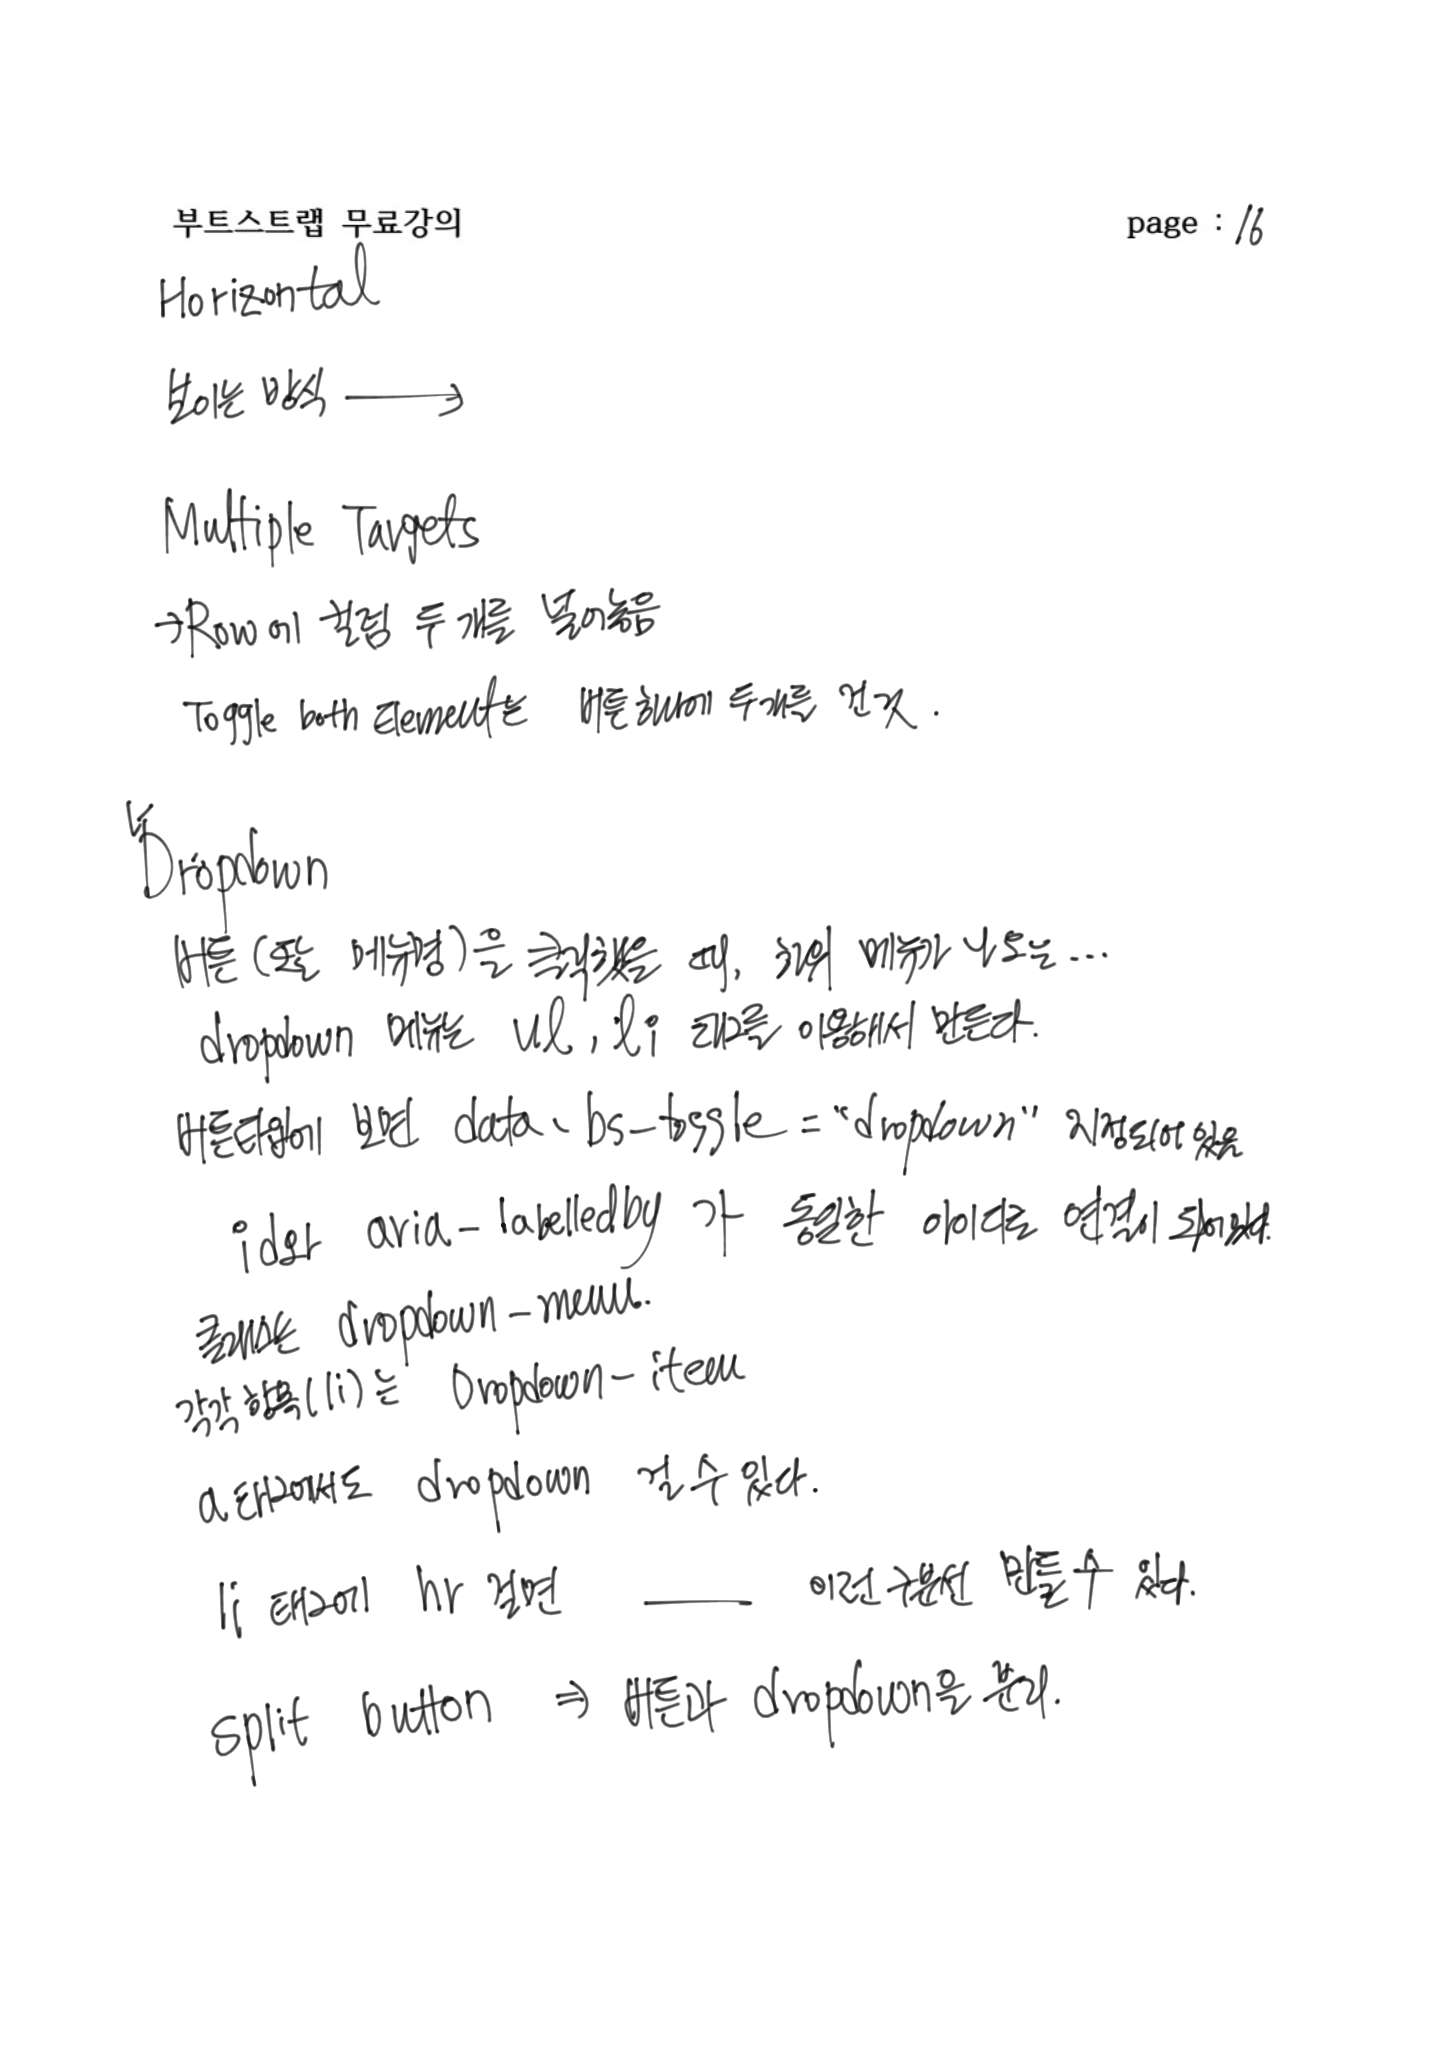 부트스트랩 무료강의 page : 16
Horizontal
보이는 방식 →
Multiple Targets
→ Row에 컬럼 두 개를 넣어놓음
Toggle both Element는 버튼 하나에 두개를 건 것.
Dropdown
버튼(또는 메뉴명)을 클릭했을 때, 하위 메뉴가 나오는...
dropdown 메뉴는 ul, li 태그를 이용해서 만든다.
버튼타입에 보면 data-bs-toggle = "dropdown" 지정되어 있음
id와 aria-labelledby 가 동일한 아이디로 연결이 되어있다.
클래스는 dropdown-menu.
각각 항목(li)는 Dropdown-item
a 태그에서도 dropdown 걸 수 있다.
li 태그에 hr 걸면 ── 이런 구분선 만들 수 있다.
split button ⇒ 버튼과 dropdown을 분리.